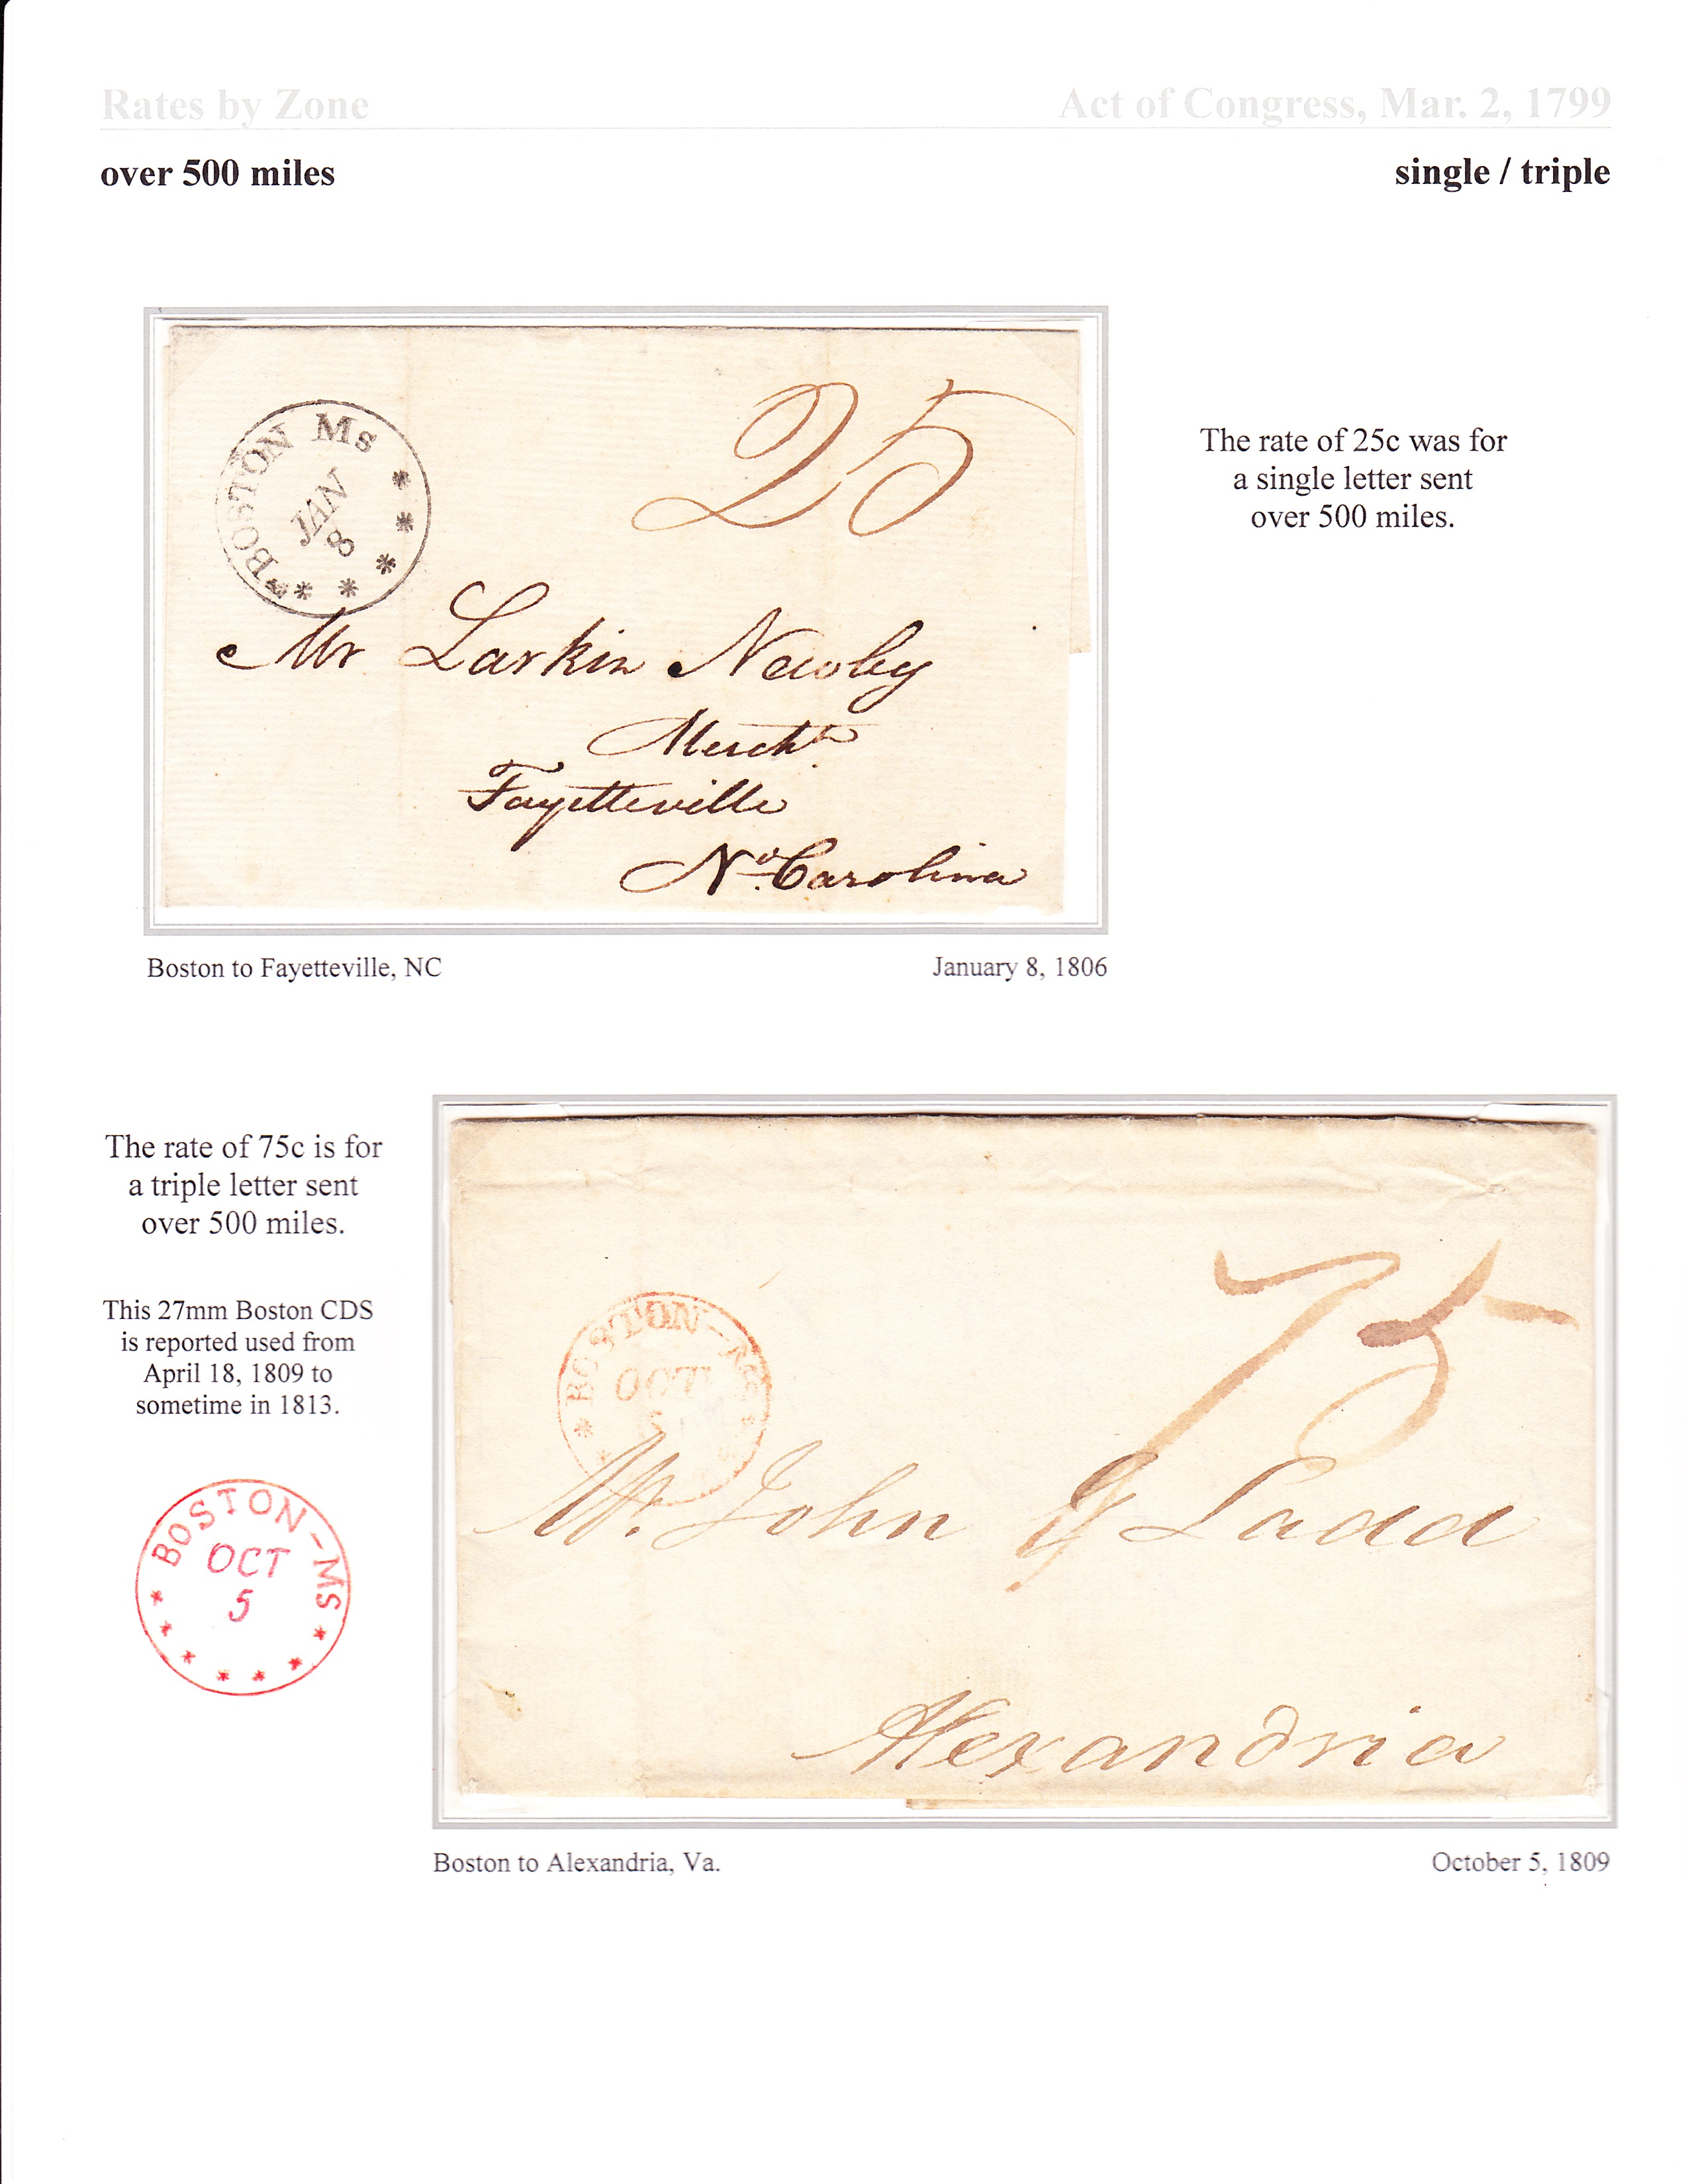 Rates by Zone
Act of Congress, Mar. 2, 1799
over 500 miles
single / triple
BOSTON Ms
JAN
8
25
Mr Larkin Newby
Mercht.
Fayetteville
No. Carolina
The rate of 25c was for
a single letter sent
over 500 miles.
Boston to Fayetteville, NC
January 8, 1806
The rate of 75c is for
a triple letter sent
over 500 miles.
This 27mm Boston CDS
is reported used from
April 18, 1809 to
sometime in 1813.
BOSTON-MS
OCT
5
BOSTON-MS
OCT
5
75
Mr. John G Ladd
Alexandria
Boston to Alexandria, Va.
October 5, 1809